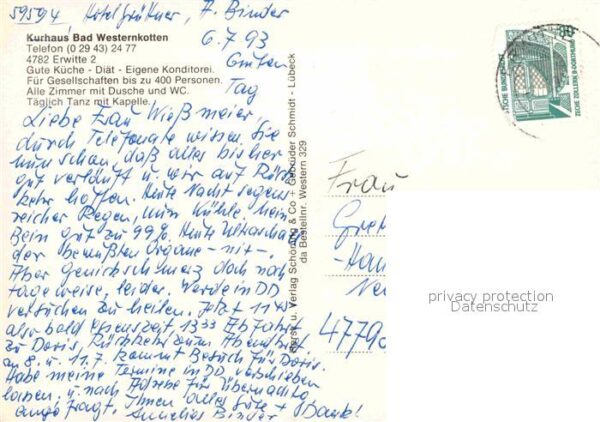 59594, Hotel Grüttner, A. Binder
6.7.93
Guten
Tag
Kurhaus Bad Westernkotten
Telefon (0 29 43) 24 77
4782 Erwitte 2
Gute Küche - Diät - Eigene Konditorei.
Für Gesellschaften bis zu 400 Personen.
Alle Zimmer mit Dusche und WC.
Täglich Tanz mit Kapelle.
Liebe Frau Wießmeier,
durch Telefonate wissen Sie
nun schon, daß alles bisher
gut verläuft u. wir auf Rück-
kehr hoffen. Heute Nacht segens-
reicher Regen, nun Kühle. Mein
Bein gut zu 99%. Heute Ultraschall
der bewußten Organe - nit -.
Aber Genickschmerz doch noch
tageweise, leider. Werde in DD
versuchen zu heilen. Jetzt 11 45
also bald Essenszeit, 13 33 Abfahrt
zu Doris, Rückkehr zum Abendbrot.
an 8. u. 11.7. kommt Besuch für Doris.
Habe meine Termine in DD verschieben
lassen, u. nach Adresse für Übernachtg.
angefragt. Ihnen alles Gute + Dank!
Annelies Binder
Verlag Schöning & Co + Gebrüder Schmidt - Lübeck
Bestellnr. Western 329
Frau
Gret
4779
ZECHE ZOLLERN II DORTMUND
privacy protection
Datenschutz